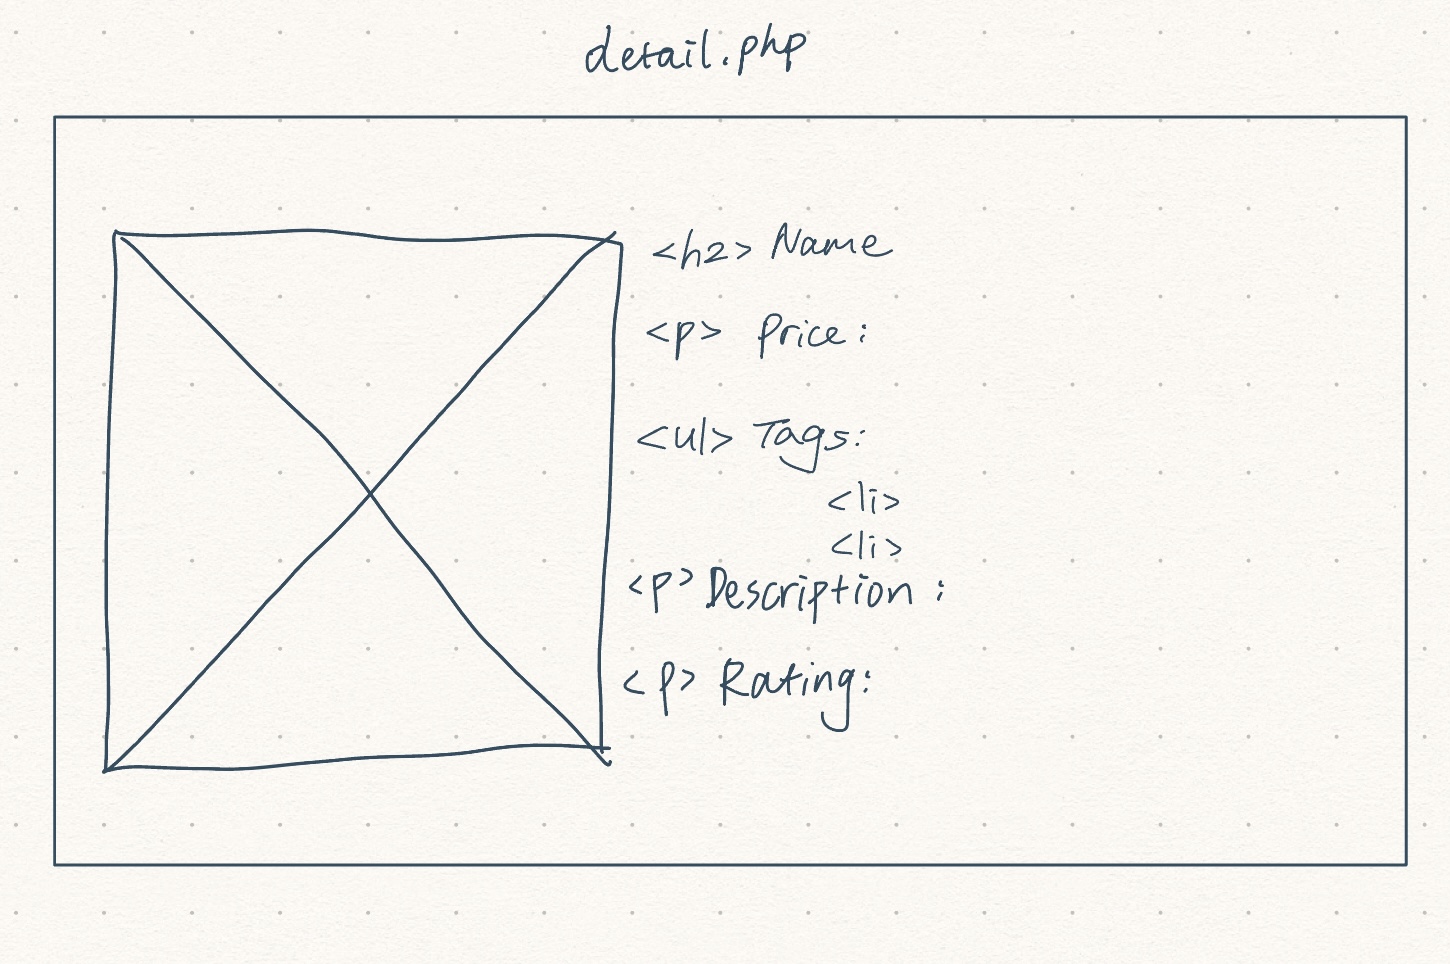 detail.php
<h2> Name
<p> Price:
<ul> Tags:
<li>
<li>
<p> Description :
<p> Rating: